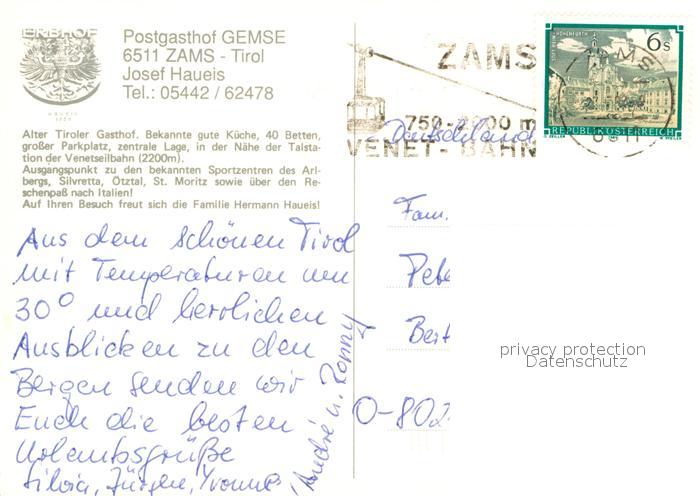 ERBHOF
Postgasthof GEMSE
6511 ZAMS - Tirol
Josef Haueis
Tel.: 05442 / 62478
Alter Tiroler Gasthof. Bekannte gute Küche, 40 Betten,
großer Parkplatz, zentrale Lage, in der Nähe der Talsta-
tion der Venetseilbahn (2200m).
Ausgangspunkt zu den bekannten Sportzentren des Arl-
bergs, Silvretta, Ötztal, St. Moritz sowie über den Re-
schenpaß nach Italien!
Auf Ihren Besuch freut sich die Familie Hermann Haueis!
Aus dem schönen Tirol
mit Temperaturen um
30° und herrlichen
Ausblicken zu den
Bergen senden wir
Euch die besten
Urlaubsgrüße
Silvia, Jürgen, Yvonne
André u. Ronny
ZAMS
VENET-BAHN
Deutschland
6 s
STIFT REIN-HOHENFURTH
REPUBLIK ÖSTERREICH
Fam.
Pete
Bert
O-802
privacy protection
Datenschutz